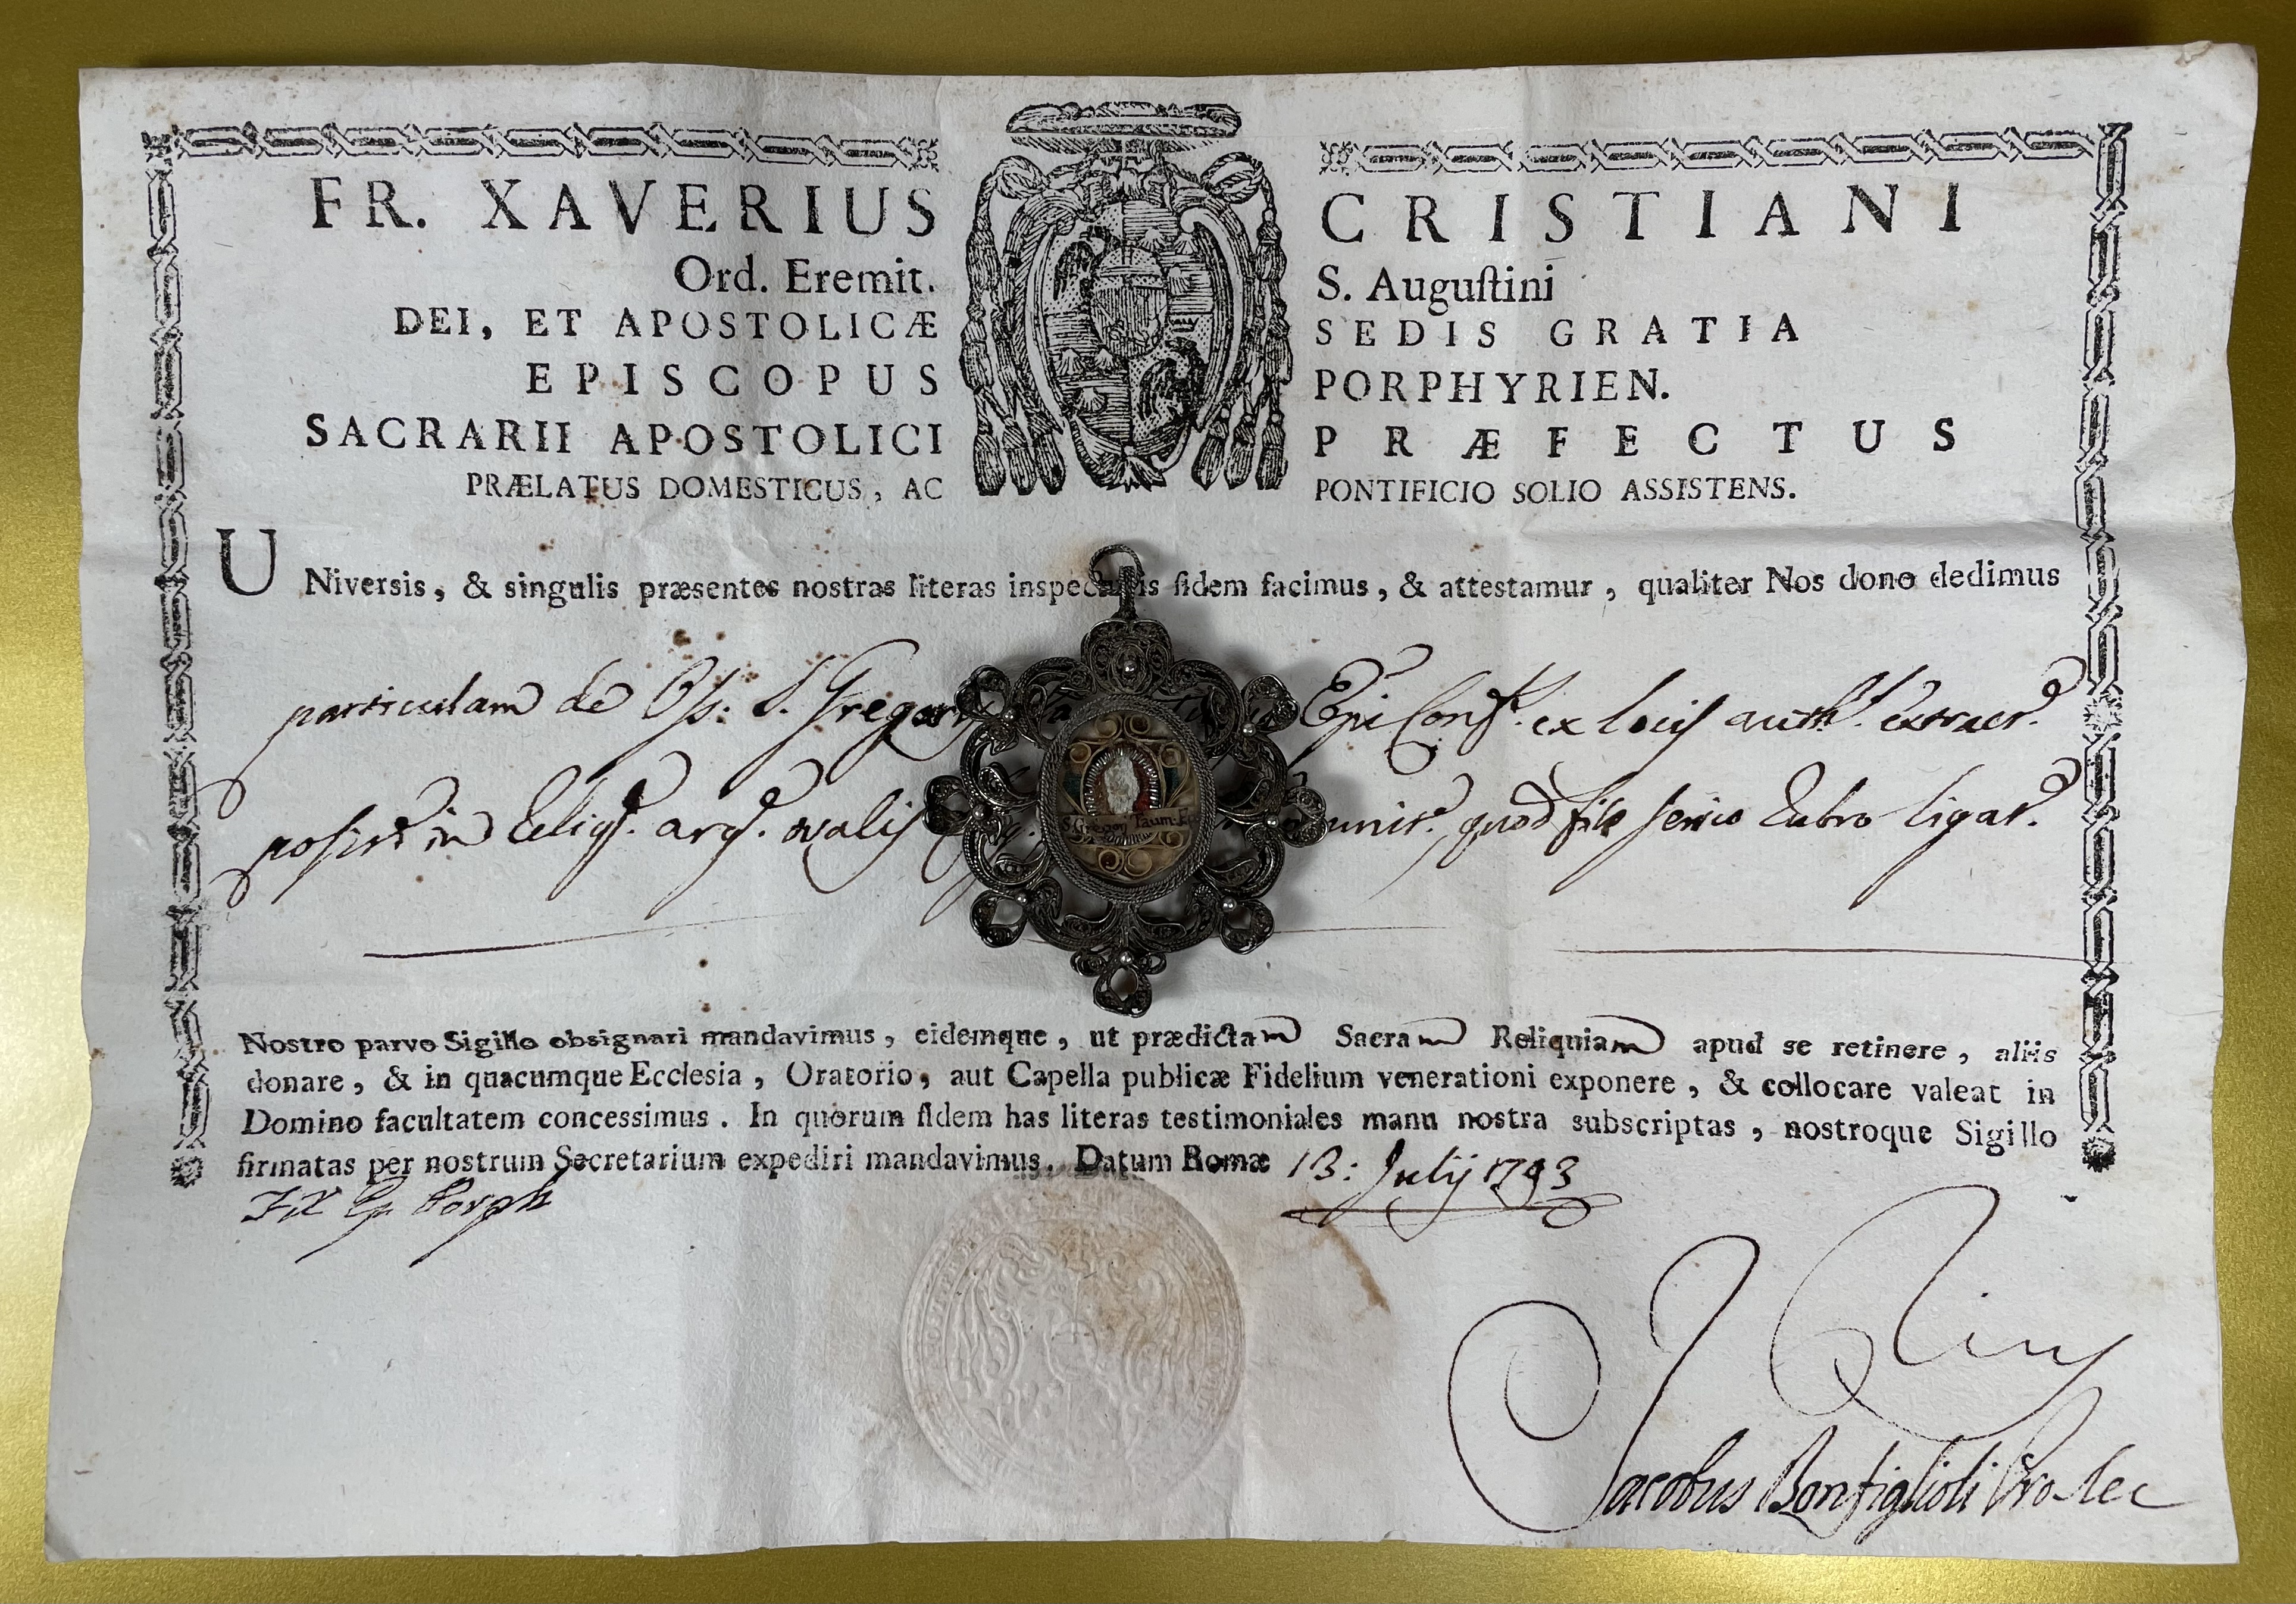 FR. XAVERIUS CRISTIANI
Ord. Eremit. S. Auguſtini
DEI, ET APOSTOLICÆ SEDIS GRATIA
EPISCOPUS PORPHYRIEN.
SACRARII APOSTOLICI PRÆFECTUS
PRÆLATUS DOMESTICUS, AC PONTIFICIO SOLIO ASSISTENS.
UNiversis, & singulis præsentes nostras literas inspecturis fidem facimus, & attestamur, qualiter Nos dono dedimus
particulam de Oss: S. Gregorij Epi Conf. ex locis auth. extract.
posit in Reliq. arg. ovalis munit. quod filo serico rubro ligat.
S. Gregorij Taum. Ep.
Nostro parvo Sigillo obsignari mandavimus, eidemque, ut prædictam Sacram Reliquiam apud se retinere, aliis
donare, & in quacumque Ecclesia, Oratorio, aut Capella publicæ Fidelium venerationi exponere, & collocare valeat in
Domino facultatem concessimus. In quorum fidem has literas testimoniales manu nostra subscriptas, nostroque Sigillo
firmatas per nostrum Secretarium expediri mandavimus. Datum Romæ 13: Julij 1793
F X Ep Porph
Jacobus Bonfiglioli Pro Sec